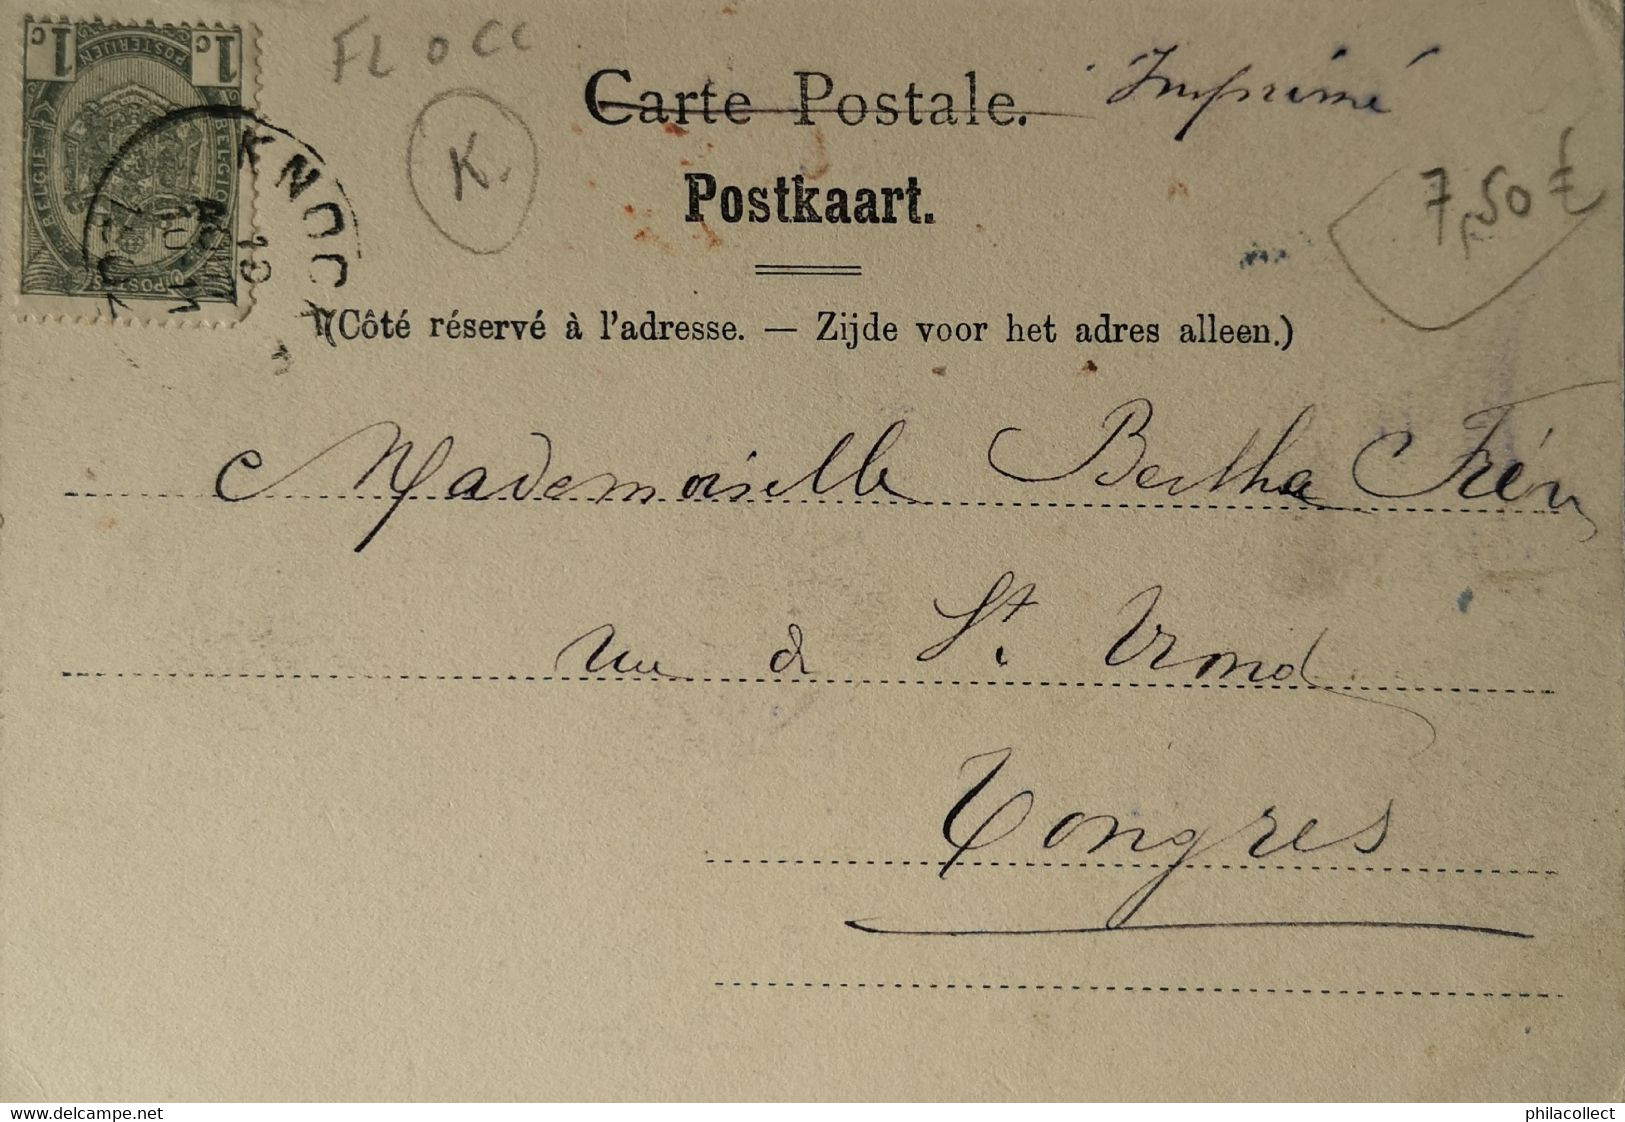 FL OCC
K.
Carte Postale. Imprimé
7,50 £
Postkaart.
(Côté réservé à l'adresse. — Zijde voor het adres alleen.)
1c 1c
POSTERIJEN
BELGIË BELGIQUE
POSTES
KNOCK
Mademoiselle Bertha
rue de St. Trond
Tongres
delcampe.net
philacollect